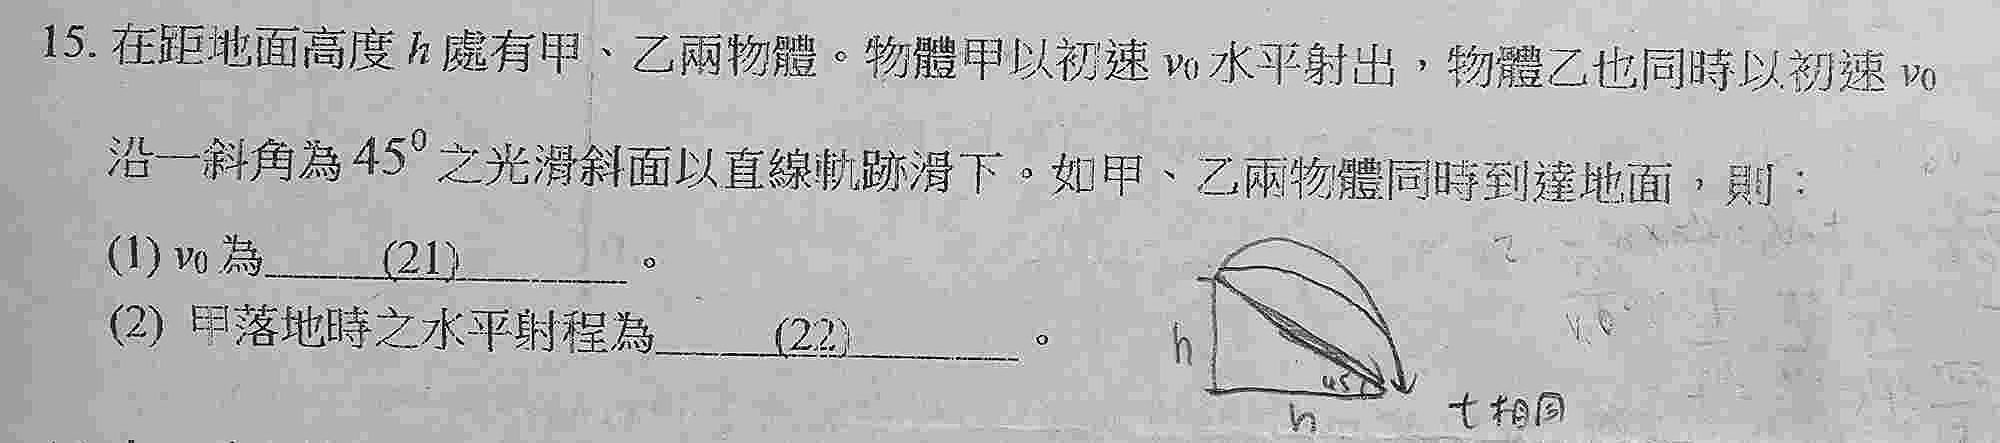 15. 在距地面高度 h 處有甲、乙兩物體。物體甲以初速 v₀ 水平射出，物體乙也同時以初速 v₀
沿一斜角為 45⁰ 之光滑斜面以直線軌跡滑下。如甲、乙兩物體同時到達地面，則：
(1) v₀ 為 (21) 。
(2) 甲落地時之水平射程為 (22) 。
h
45
h
t 相同